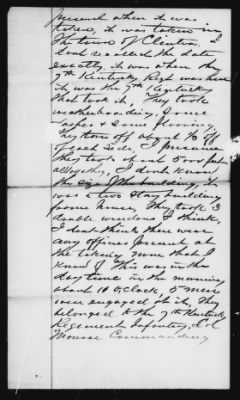 present when it was
taken, it was taken in
the town of Clinton I
cant recollect the date
exactly, it was when the
7th Kentucky Regt was here
it was the 7th Kentucky
that took it, They took
weatherboarding, some
rafters & some flooring,
they tore off about ½ of
of each side, I presume
they took about 5000 feet
altogether, I dont know
the size of the building, it
was a two story building
frame house. They took 3
double windows I think,
I dont think there were
any officers present at
the taking none that I
know of This was in the
day time in the morning
about 10 O,clock, 5 men
were engaged in it, they
belonged to the 7th Kentucky
Regiment Infantry, Col
Monroe Commanding